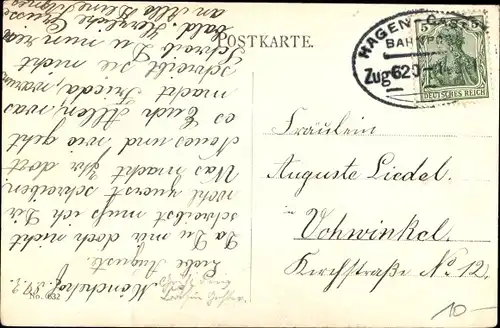 POSTKARTE.
HAGEN-CASSEL
BAHNPOST
Zug 620
5
DEUTSCHES REICH
Fräulein
Auguste Liedel.
Vohwinkel.
Kirchstraße No. 12.
Mönchehof
Liebe Auguste.
Da Du mir doch nicht
schreibst muß ich Dir
wohl zuerst schreiben
Was macht Ihr dort
Neues und wie geht
es Euch Allen, was
macht Frieda, warum
schreibt sie nicht
Schreib Du nun
bald. Herzliche Grüsse
an Alle Deine
No. 632
10-